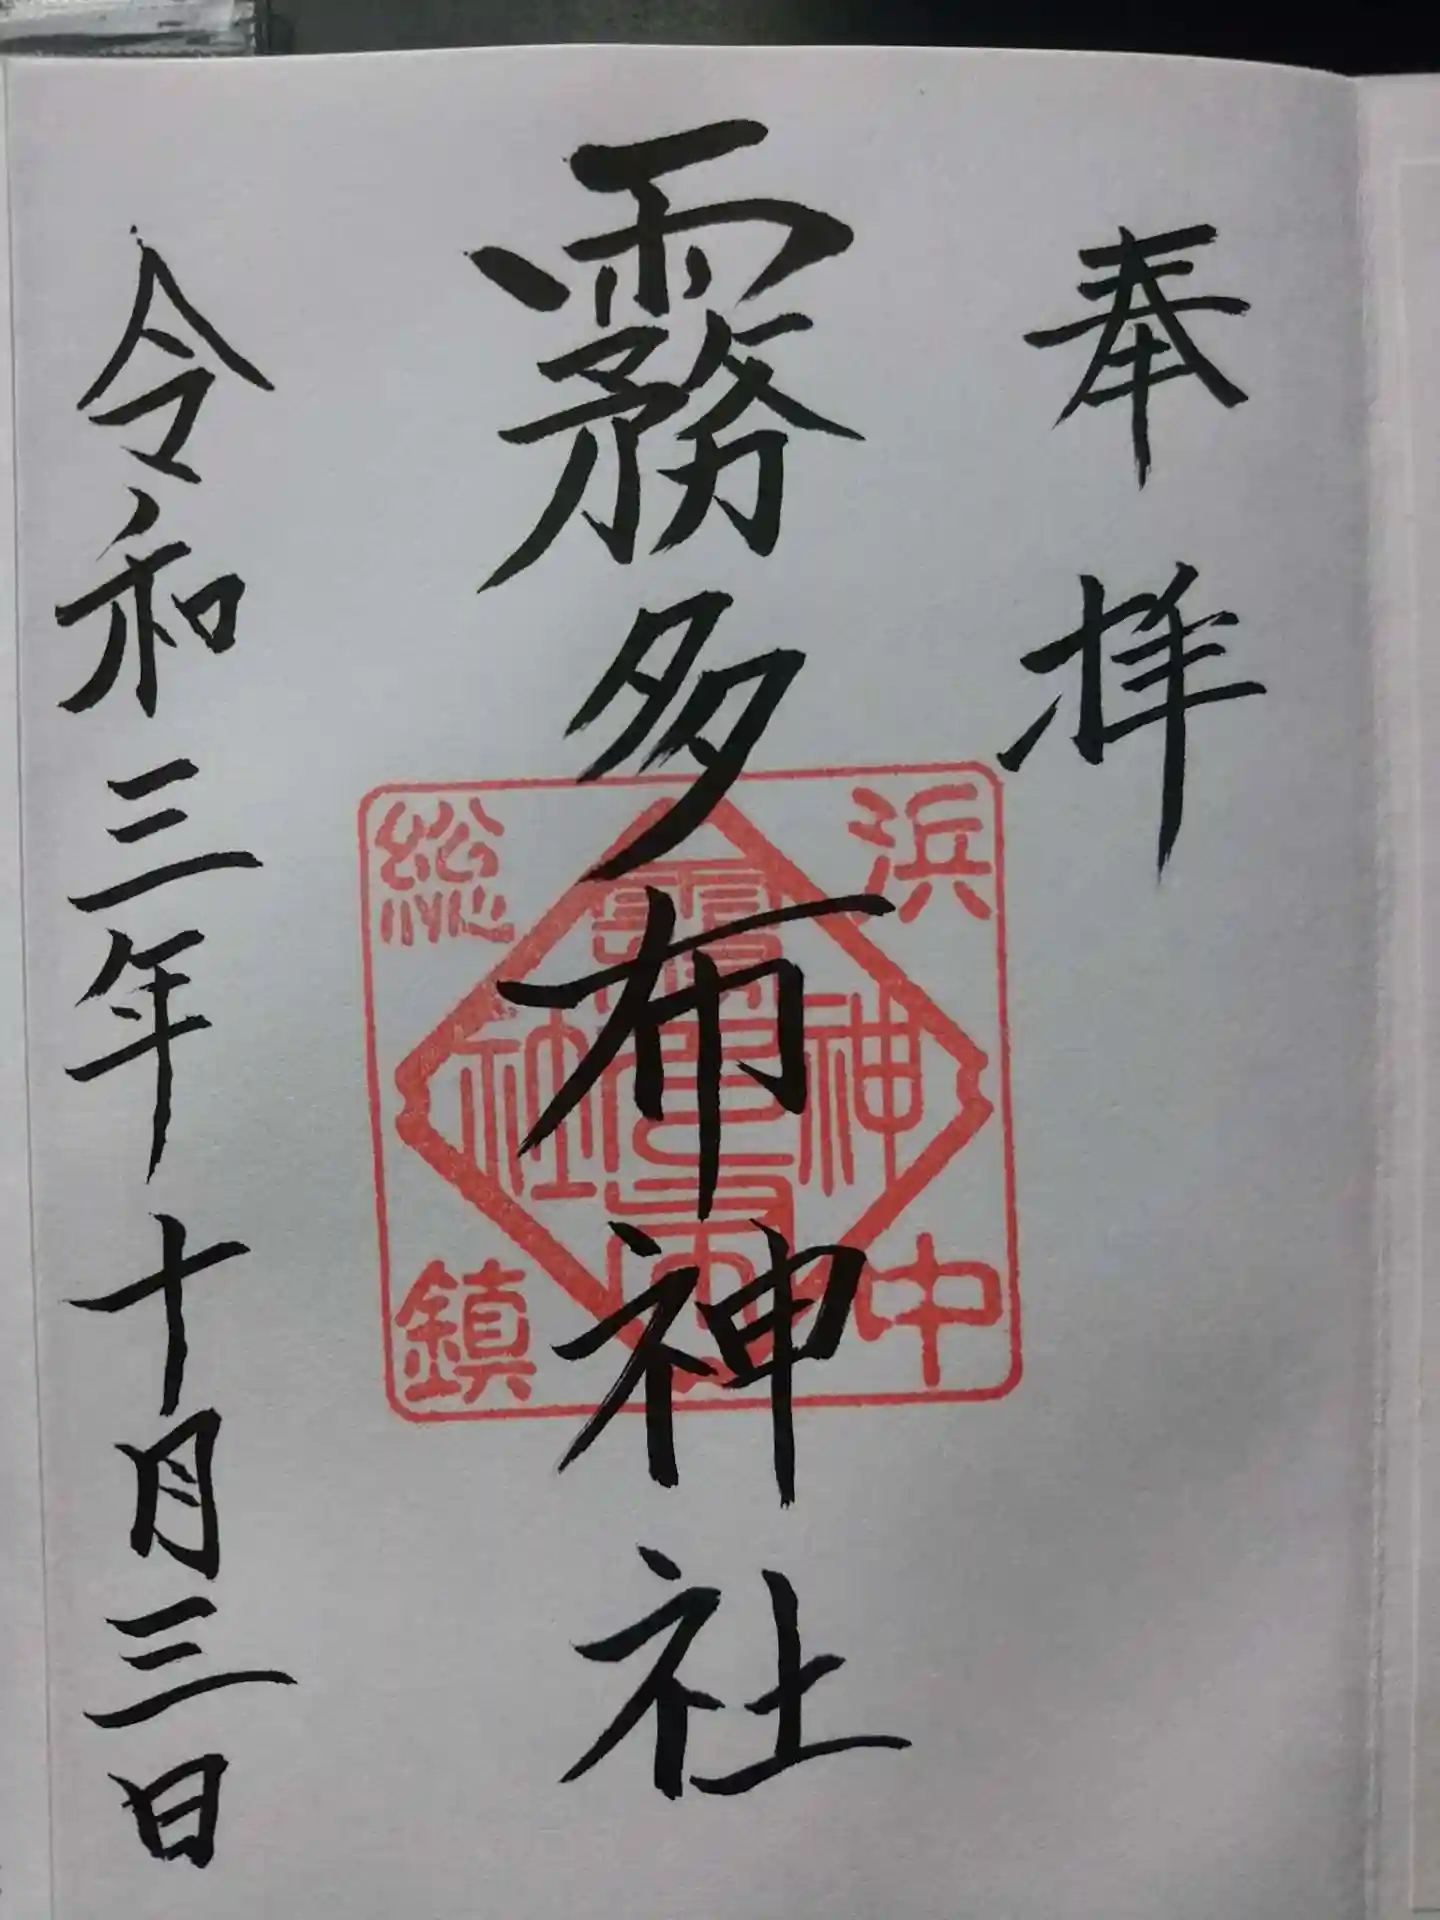 奉拝
霧多布神社
浜中
総鎮
霧多布
神社
令和三年十月三日